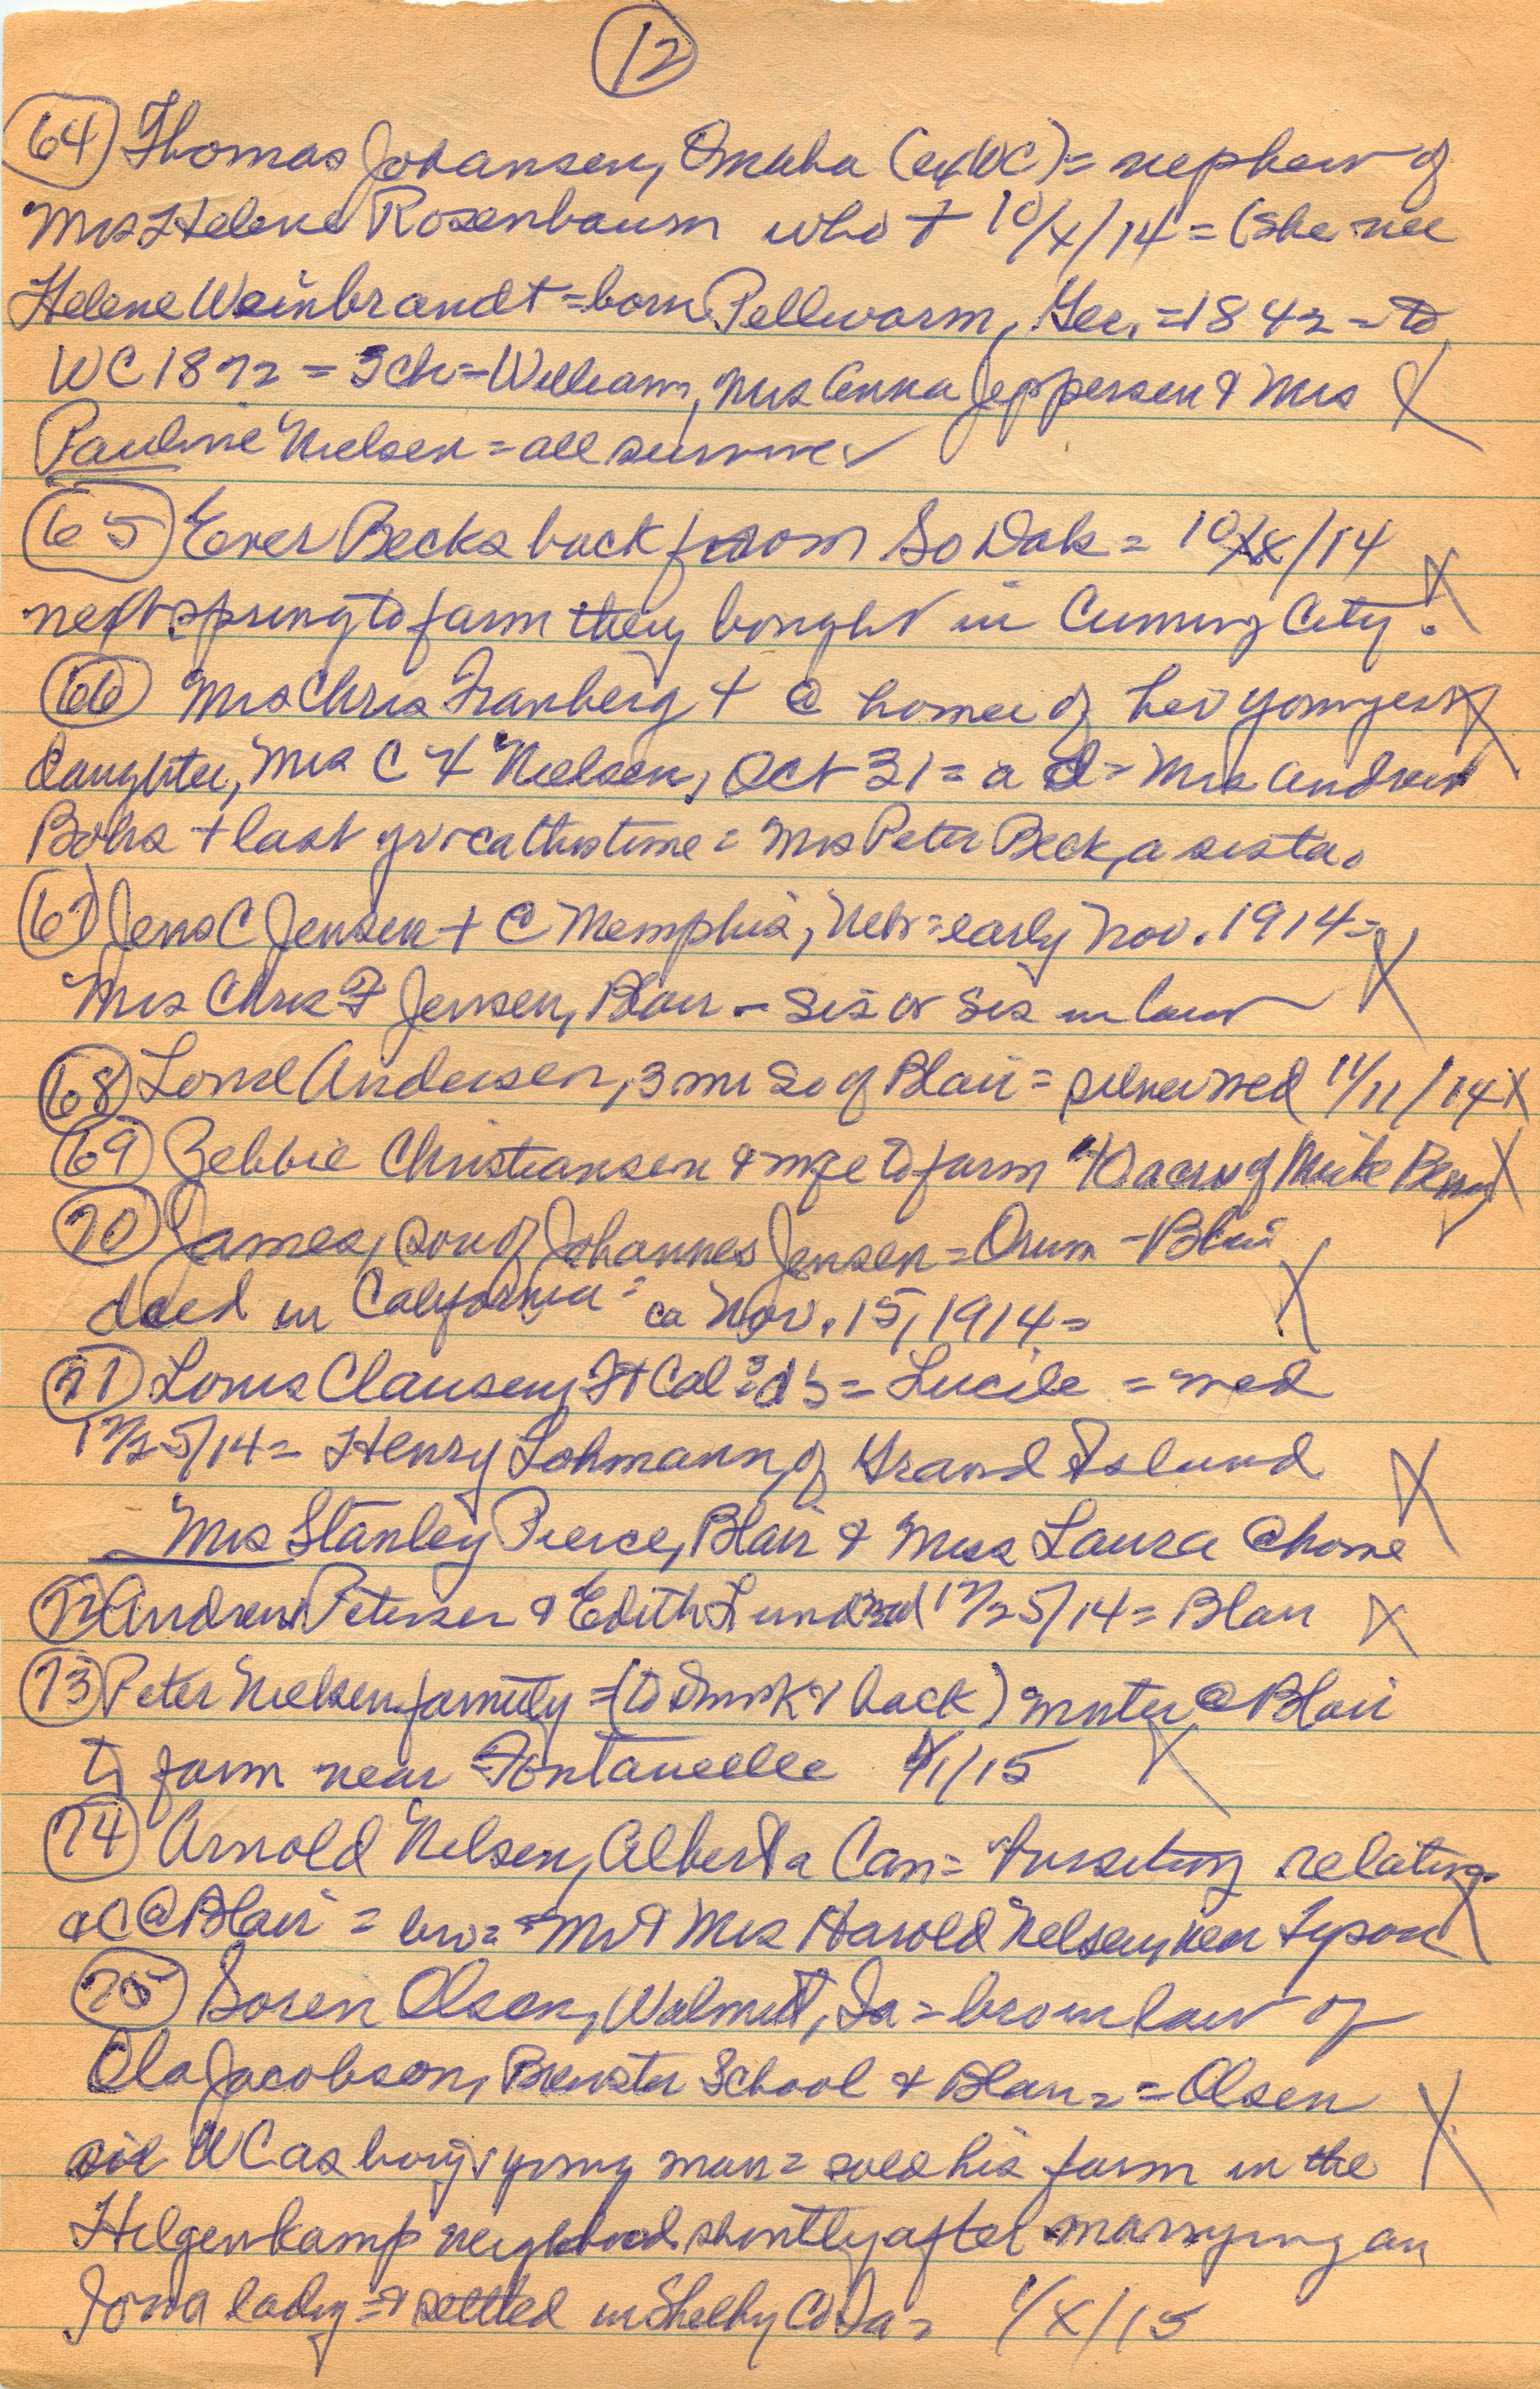 12
64 Thomas Johansen, Omaha (ex WC) = nephew of
Mrs Helene Rosenbaum who † 10/x/14 = (she nee
Helene Weinbrandt = born Pellworm, Ger. = 1842 = to
WC 1872 = 3 ch = William, Mrs Anna Jeppersen & Mrs X
Pauline Nielsen = all survive ✓
65 Ever Becks back from So Dak = 10/x/14
next spring to farm they bought in Cuming City. X
66 Mrs Chris Franberg † @ home of her youngest X
daughter, Mrs C F Nielsen, Oct 31 = a d = Mrs Andrew
Bohs † last yr ca this time = Mrs Peter Beck, a sister.
67 Jens C Jensen † @ Memphis, Nebr = early Nov. 1914 =
Mrs Chris F Jensen, Blair = sis or sis in law X
68 Andersen, 3 mi So of Blair = silver wed 11/11/14 X
69 Christiansen & mge to farm 40 acres of Mike X
70 James, son of Johannes Jensen = Orum - Blair
died in California = ca Nov. 15, 1914 = X
71 Louis Clausen, Ft Cal = 3 d's = Lucile = wed
12/25/14 = Henry Lohmann of Grand Island X
Mrs Stanley Pierce, Blair & Miss Laura @ home
72 Andrew Petersen & Edith Lund wed 12/25/14 = Blair X
73 Peter Nielsen family = (to Dmrk & back) winter @ Blair
to farm near Fontanelle 4/1/15 X
74 Arnold Nelsen, Alberta Can = visiting relatives
@ Blair = bro = Mr & Mrs Harold Nelsen, near Tyson X
75 Soren Olsen, Walnut, Ia = bro in law of
Ola Jacobson, Brewster School & Blair = = Olsen
WC as boy & young man = sold his farm in the X
Hilgenkamp neighborhood shortly after marrying an
Iowa lady = & settled in Shelby Co Ia = 1/x/15